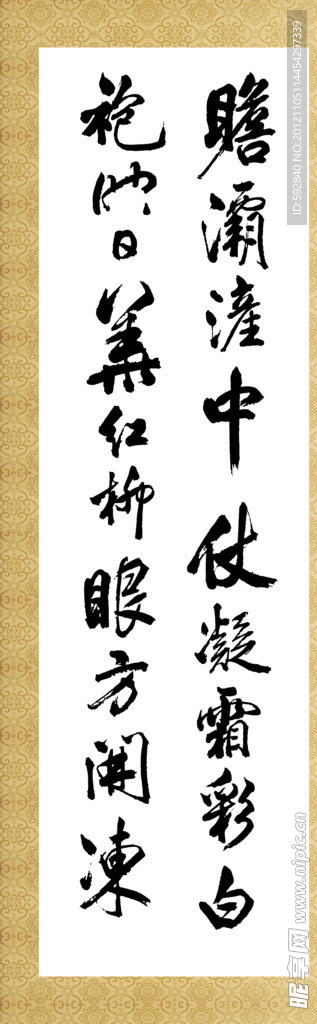 瞻灞滻中仗凝霜彩白
袍映日華紅柳眼方開凍
ID:592840 NO:20121105114454297339
昵享网 www.nipic.cn